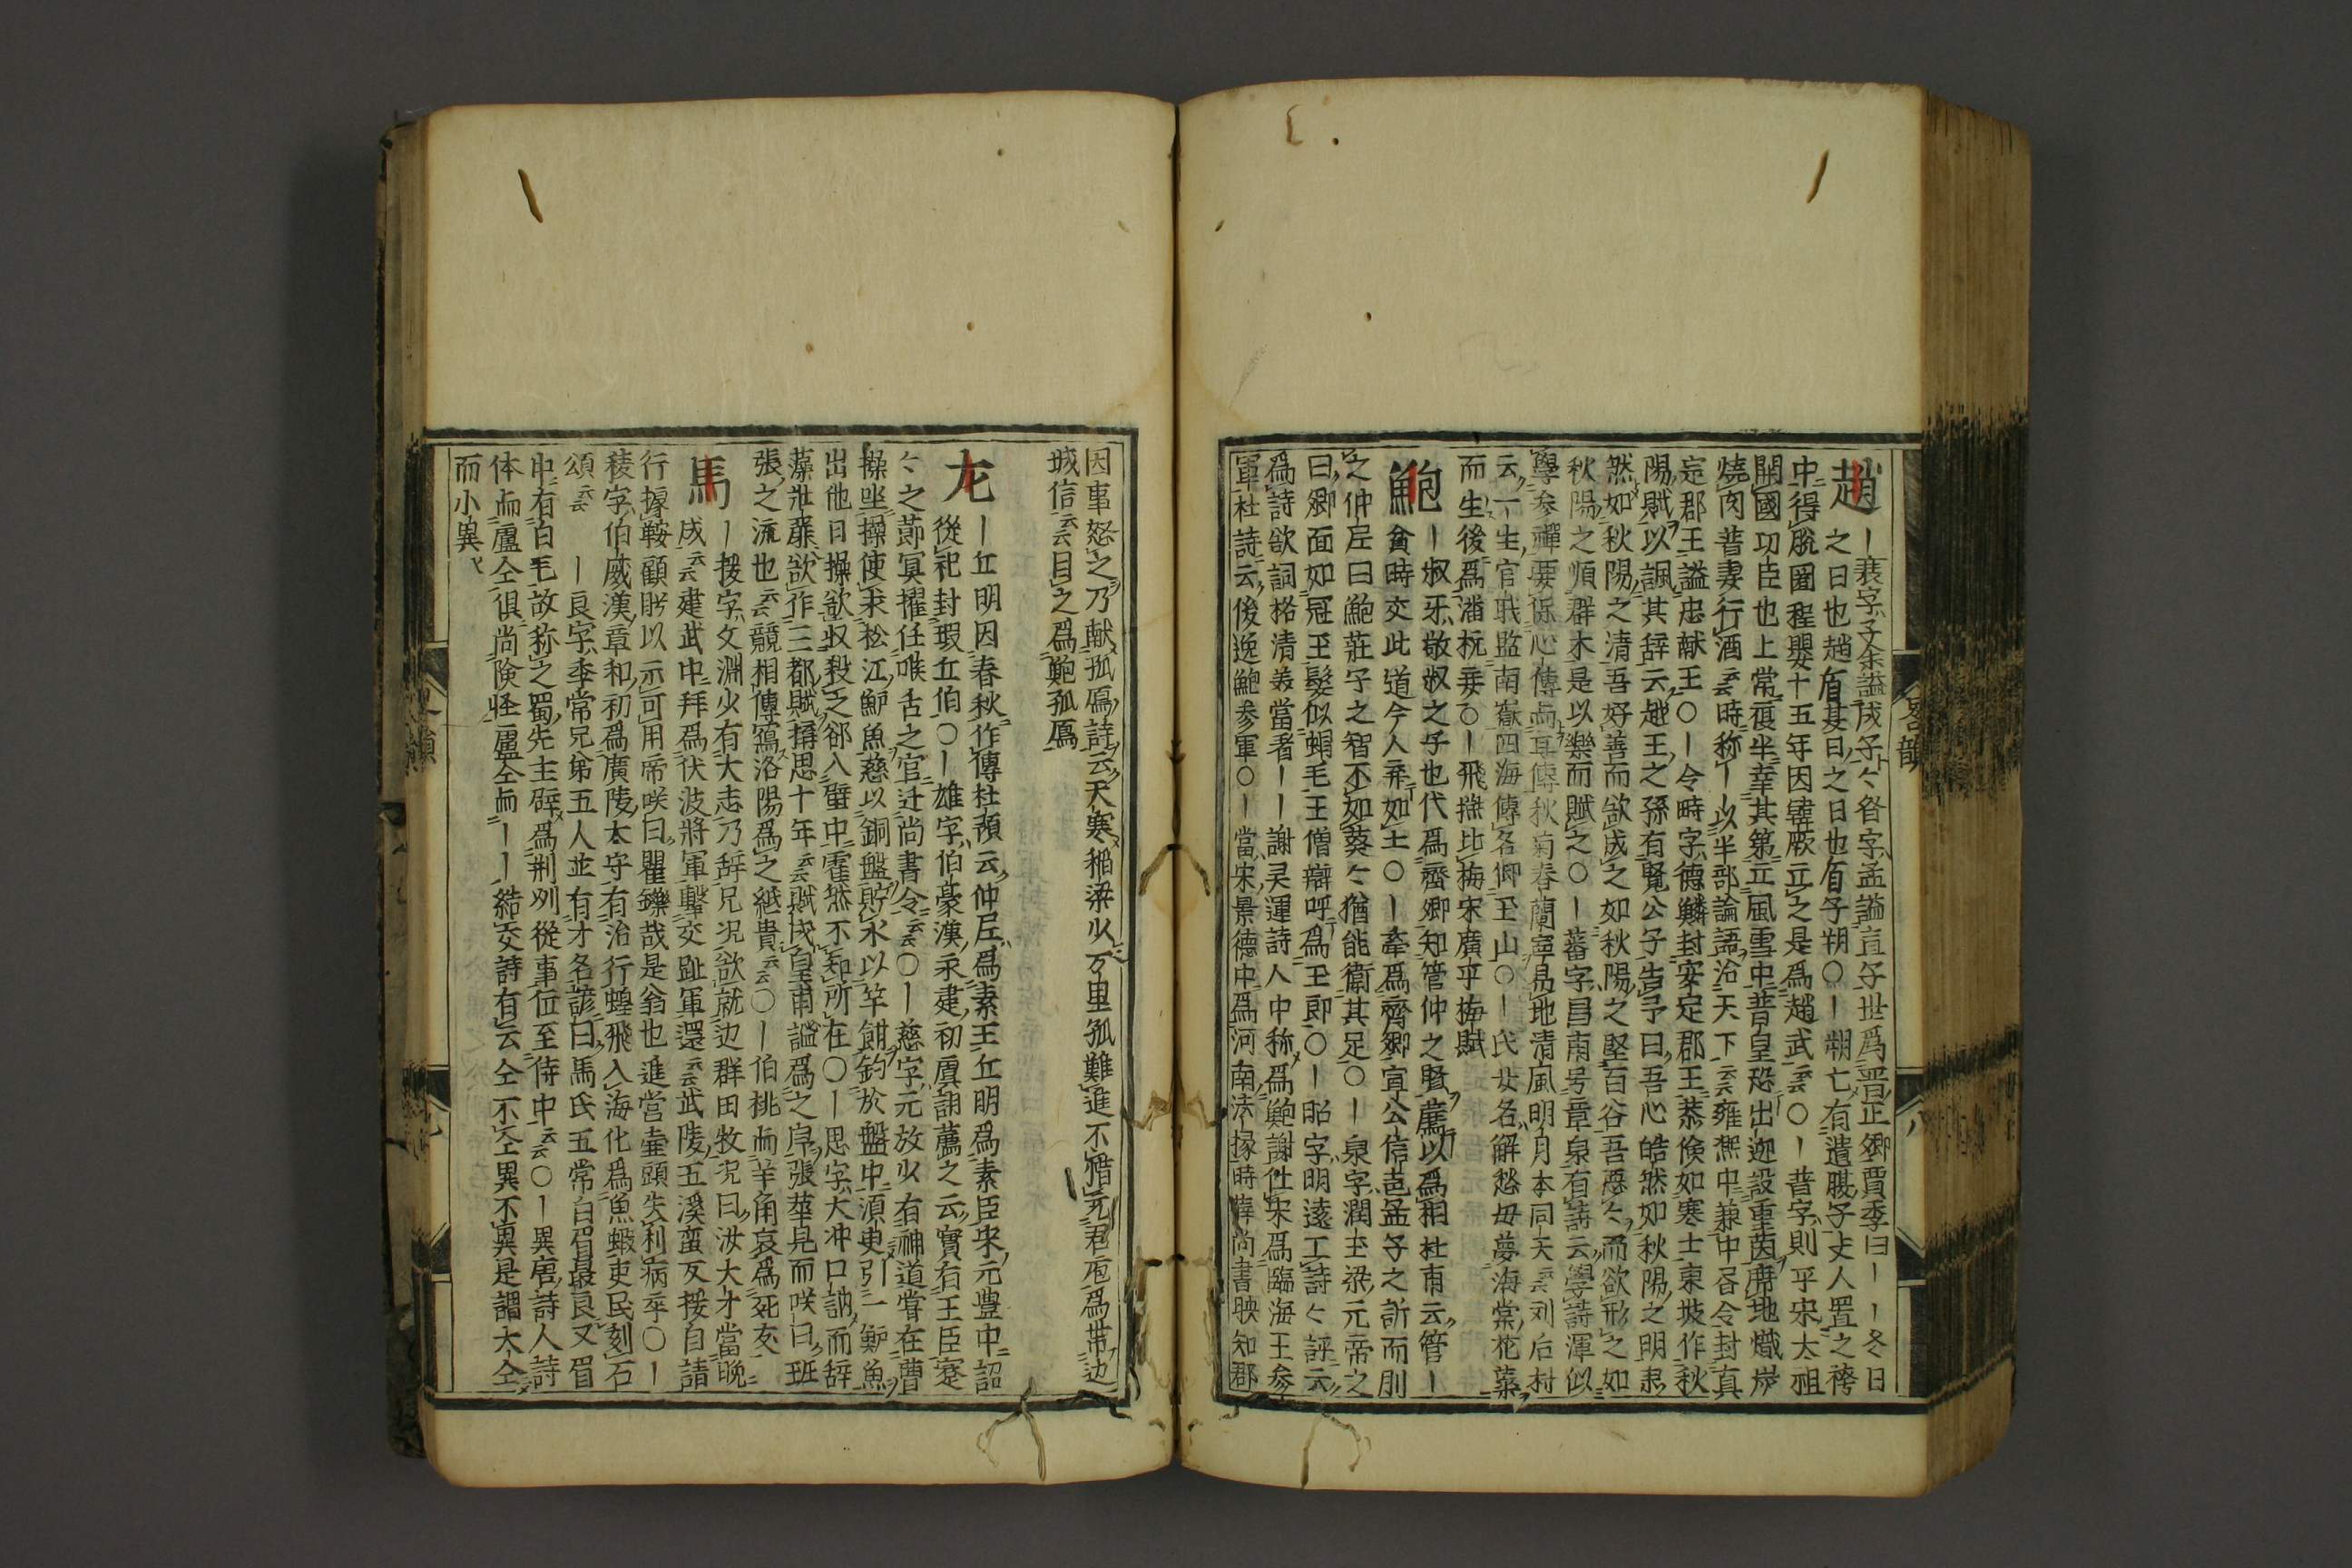 趙
｜衰字子余謚成子〻咎字孟謚宣子世爲晋正卿賈季曰｜｜冬日
之日也趙盾夏日之日也盾子朔○｜朔亡有遺腹子丈人置之袴
中得脫圍程嬰十五年因韓厥立之是爲趙武云云○｜普字則平宋太祖
開國功臣也上常夜半幸其第立風雪中普皇恐出迎設重茵席地熾炭
燒肉普妻行酒云云時称｜以半部論語治天下云云雍熙中兼中書令封真
定郡王謚忠献王○｜令畤字德麟封安定郡王恭倹如寒士東坡作秋
陽賦以諷其辞云越王之孫有賢公子告予曰吾心皓然如秋陽之明肅
然如秋陽之清吾好善而欲成之如秋陽之堅百谷吾惡〻而欲形之如
秋陽之順群木是以樂而賦之○｜蕃字昌甫号章泉有詩云學詩渾似
學参禪要保心傳与耳傳秋菊春蘭寧易地清風明月本同天云云刘后村
云一生官職監南嶽四海傳名仰玉山○｜氏女名解愁母夢海棠花蘂
而生後爲潘枕妻○｜飛燕比梅宋廣平梅賦
鮑
｜叔牙敬叔之子也代爲齊卿知管仲之賢薦以爲相杜甫云管｜
貧時交此道今人弃如土○｜牽爲齊卿宣公信芭孟子之訴而刖
之仲尼曰鮑莊子之智不如葵〻猶能衛其足○｜泉字潤玉梁元帝之
曰卿面如冠玉髮似蝟毛王僧辯呼爲王郎○｜昭字明遠工詩〻評云
爲詩欲詞格清美當看｜｜謝灵運詩人中称爲鮑謝仕宋爲臨海王参
軍杜詩云後逸鮑参軍○｜當宋景德中爲河南法掾時薛尚書映知郡
因事怒之乃献孤鴈詩云天寒稲粱少万里孤難進不惜充君庖爲带边
城信云云目之爲鮑孤鴈
左
｜丘明因春秋作傳杜預云仲尼爲素王丘明爲素臣宋元豊中詔
從祀封瑕丘伯○｜雄字伯豪漢永建初虞詡薦之云實有王臣蹇
〻之節冥擢任喉舌之官迁尚書令云云○｜慈字元放少有神道嘗在曹
操坐操使求松江鱸魚慈以銅盤貯水以竿餌釣於盤中須臾引一鱸魚
出他日操欲収殺之郤入壁中霍然不知所在○｜思字大冲口訥而辞
藻壮麗欲作三都賦搆思十年云云賦成皇甫謐爲之序張華見而咲曰班
張之流也云云競相傳寫洛陽爲之紙貴云云○｜伯桃与羊角哀爲死友
馬
｜援字文淵少有大志乃辞兄况欲就边群田牧况曰汝大才當晩
成云云建武中拜爲伏波將軍擊交趾軍還云云武陵五溪蛮反援自請
行據鞍顧眄以示可用帝咲曰矍鑠哉是翁也進営壷頭失利病卒○｜
稜字伯威漢章和初爲廣陵太守有治行蝗飛入海化爲魚蝦吏民刻石
頌云云　｜良字季常兄弟五人並有才名諺曰馬氏五常白眉最良又眉
中有白毛故称之蜀先主辟爲荆州從事位至侍中云云○｜異唐詩人詩
体与盧仝俱尚険怪盧仝与｜｜結交詩有云仝不仝異不異是謂大仝
而小異〻